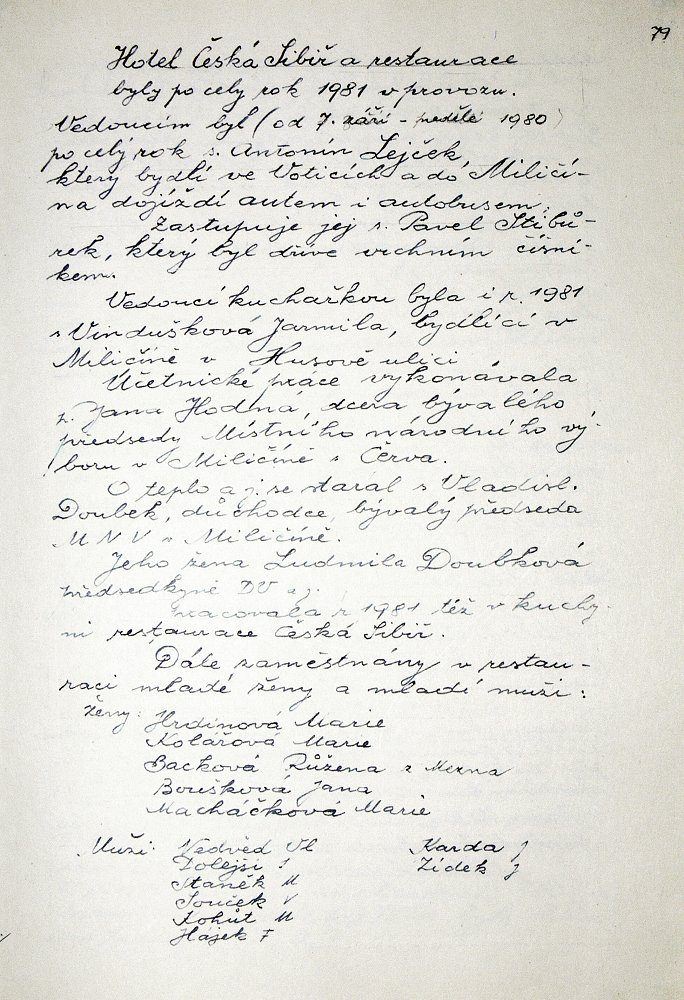 79
Hotel Česká Sibiř a restaurace
byly po celý rok 1981 v provozu.
Vedoucím byl (od 7. září - neděle 1980)
po celý rok s. Antonín Lejček,
který bydlí ve Voticích a do Miličí-
na dojíždí autem i autobusem.
Zastupuje jej s. Pavel Stibů-
rek, který byl dříve vrchním číšní-
kem.
Vedoucí kuchařkou byla i r. 1981
s Vindušková Jarmila, bydlící v
Miličíně v Husově ulici
Účetnické práce vykonávala
Jana Hodná, dcera bývalého
předsedy Místního národního vý-
boru v Miličíně s Červa.
O teplo a j. se staral s Vladisl.
Doubek, důchodce, bývalý předseda
MNV v Miličíně.
Jeho žena Ludmila Doubková
předsedkyně DV a j.
pracovala r 1981 též v kuchy-
ni restaurace Česká Sibiř.
Dále zaměstnány v restau-
raci mladé ženy a mladí muži:
Ženy: Hrdinová Marie
Kolářová Marie
Backová Růžena z Mezna
Boušková Jana
Macháčková Marie
Muži: Nedvěd Vl Karda J
Dolejší J Zídek J
Staněk M
Souček V
Kohút M
Hájek F